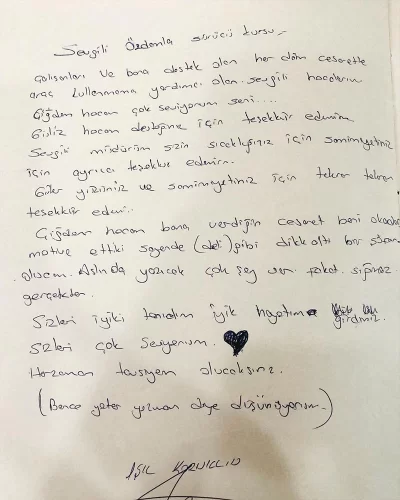 Sevgili Özdamla sürücü kursu
Çalışanları ve bana destek olan her daim cesaretle
araç kullanmama yardımcı olan sevgili hocalarım
Çiğdem hocam çok seviyorum seni....
hocam desteğiniz için teşekkür ederim
Sevgili müdürüm sizin sıcaklığınız için samimiyetiniz
için ayrıca teşekkür ederim.
Güler yüzünüz ve samimiyetiniz için tekrar tekrar
teşekkür ederim.
Çiğdem hocam bana verdiğin cesaret beni
motive ettiki sayende (deli) gibi dikkatli bir
olucam. Aslında yazıcak çok şey var fakat
gerçekten.
Sizleri iyiki tanıdım iyik hayatıma girdiniz.
Sizleri çok seviyorum.
Herzaman tavsiyem olucaksınız.
(Bence yeter yazmam diye düşünüyorum.)